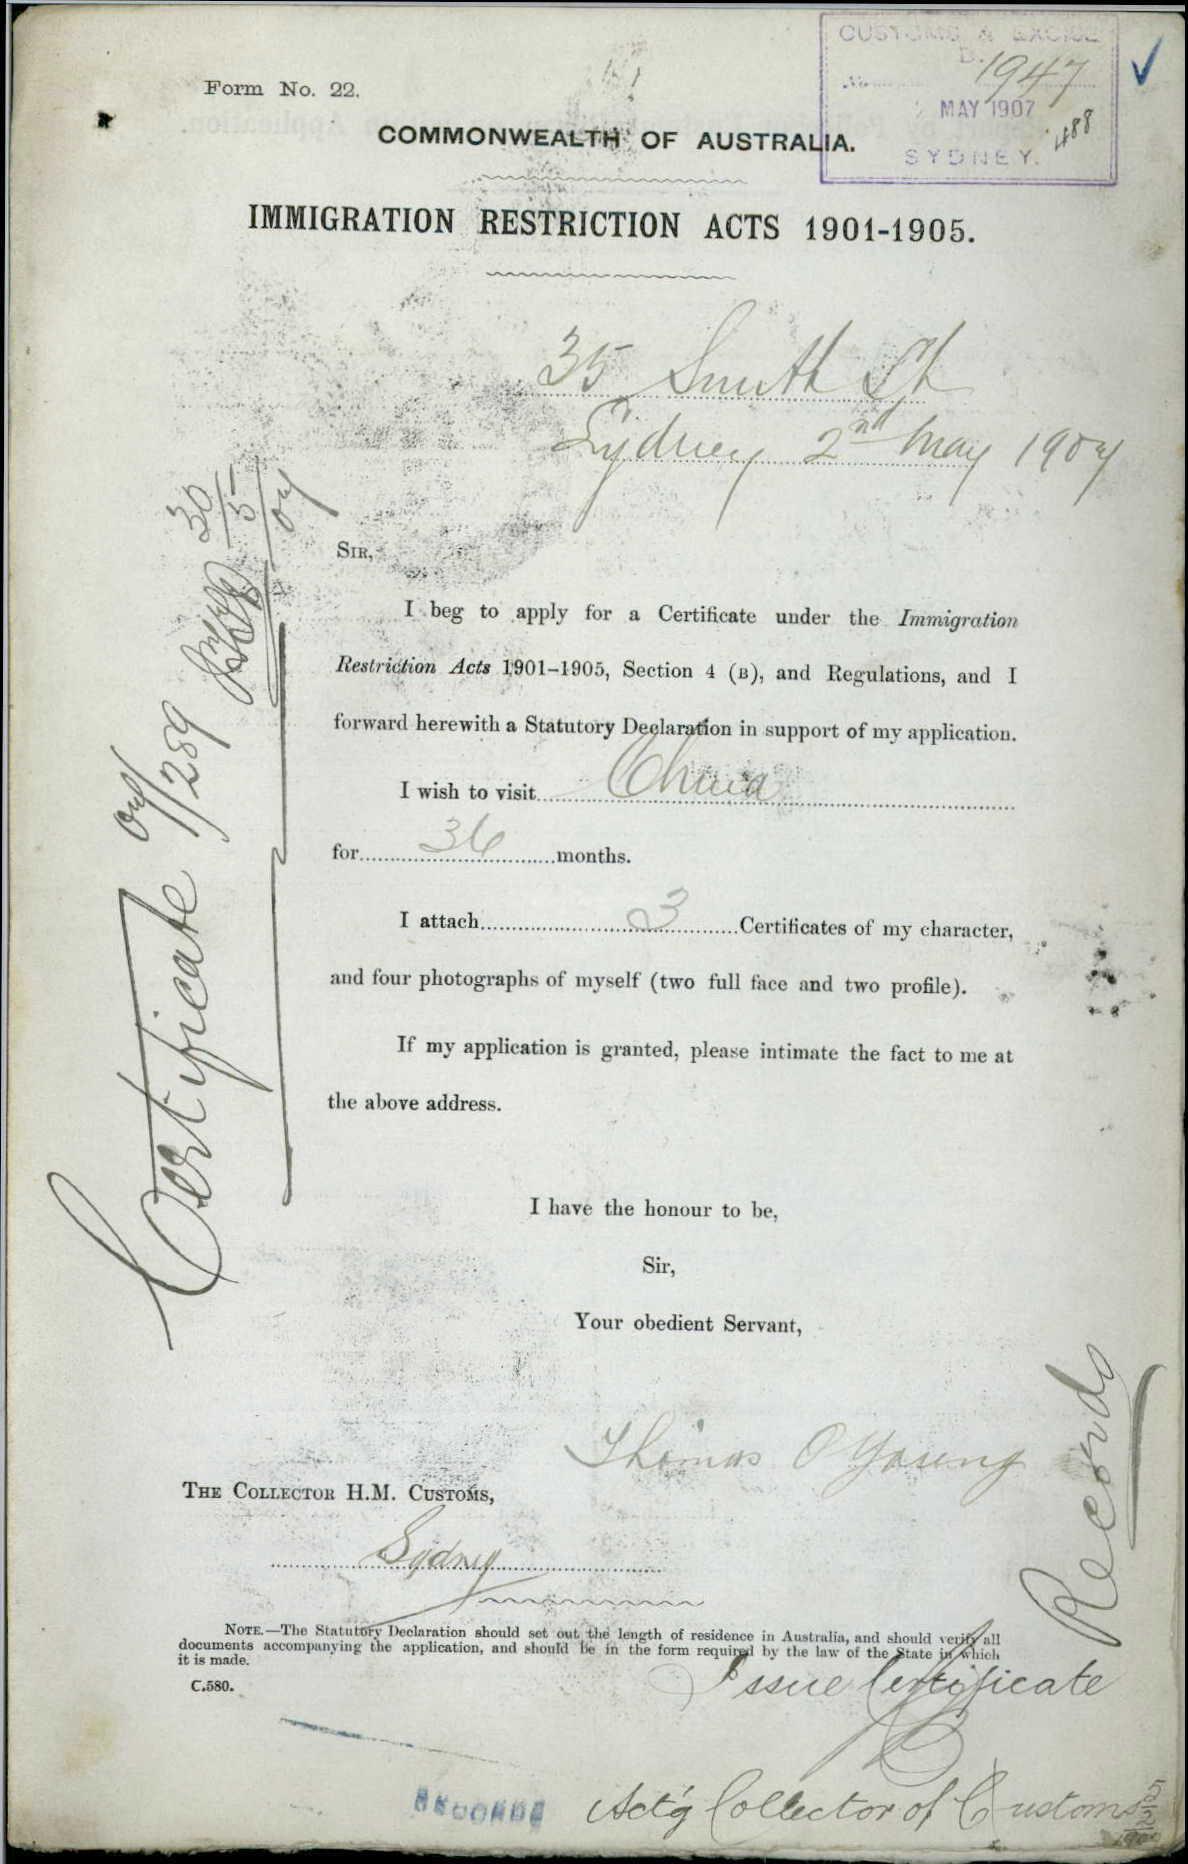 CUSTOMS & EXCISE
1947
MAY 1907
488
SYDNEY.
Form No. 22.
COMMONWEALTH OF AUSTRALIA.
IMMIGRATION RESTRICTION ACTS 1901-1905.
35 Smith St
Sydney 2nd May 1907
SIR,
I beg to apply for a Certificate under the Immigration
Restriction Acts 1901-1905, Section 4 (B), and Regulations, and I
forward herewith a Statutory Declaration in support of my application.
I wish to visit China
for 36 months.
I attach 3 Certificates of my character,
and four photographs of myself (two full face and two profile).
If my application is granted, please intimate the fact to me at
the above address.
I have the honour to be,
Sir,
Your obedient Servant,
Thomas O'Young
THE COLLECTOR H.M. CUSTOMS,
Sydney
NOTE.—The Statutory Declaration should set out the length of residence in Australia, and should verify all
documents accompanying the application, and should be in the form required by the law of the State in which
it is made.
C.580.
Issue Certificate
Act'g Collector of Customs
RECORDS
Certificate 07/289
30/5/07
Records